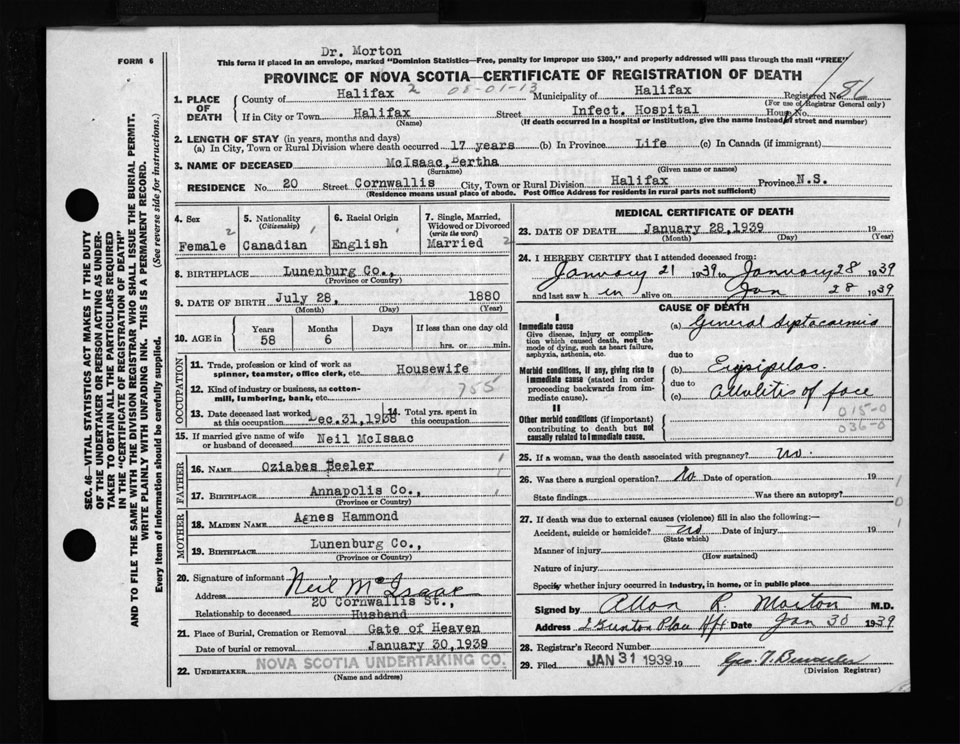 Dr. Morton
FORM 6
This form if placed in an envelope, marked "Dominion Statistics—Free, penalty for improper use $300," and properly addressed will pass through the mail "FREE"
PROVINCE OF NOVA SCOTIA—CERTIFICATE OF REGISTRATION OF DEATH
SEC. 46—VITAL STATISTICS ACT MAKES IT THE DUTY
OF THE UNDERTAKER OR PERSON ACTING AS UNDER-
TAKER TO OBTAIN ALL THE PARTICULARS REQUIRED
IN THE "CERTIFICATE OF REGISTRATION OF DEATH"
AND TO FILE THE SAME WITH THE DIVISION REGISTRAR WHO SHALL ISSUE THE BURIAL PERMIT.
WRITE PLAINLY WITH UNFADING INK. THIS IS A PERMANENT RECORD.
Every item of information should be carefully supplied. (See reverse side for instructions.)
1. PLACE OF DEATH
County of Halifax 2 08-01-13 Municipality of Halifax Registered No. 86
(For use of Registrar General only)
If in City or Town Halifax Street Infect. Hospital House No.
(Name) (If death occurred in a hospital or institution, give the name instead of street and number)
2. LENGTH OF STAY (in years, months and days)
(a) In City, Town or Rural Division where death occurred 17 years (b) In Province Life (c) In Canada (if immigrant)
3. NAME OF DECEASED McIsaac, Bertha
(Surname) (Given name or names)
RESIDENCE No. 20 Street Cornwallis City, Town or Rural Division Halifax Province N.S.
(Residence means usual place of abode. Post Office Address for residents in rural parts not sufficient)
4. Sex
Female 2
5. Nationality
(Citizenship)
Canadian 1
6. Racial Origin
English 1
7. Single, Married,
Widowed or Divorced
(write the word)
Married 2
8. BIRTHPLACE Lunenburg Co.,
(Province or Country)
9. DATE OF BIRTH July 28, 1880
(Month) (Day) (Year)
10. AGE in
Years Months Days If less than one day old
58 6 hrs. or min.
OCCUPATION
11. Trade, profession or kind of work as
spinner, teamster, office clerk, etc. Housewife
12. Kind of industry or business, as cotton-
mill, lumbering, bank, etc. 755
13. Date deceased last worked
at this occupation Dec.31,1938
14. Total yrs. spent in
this occupation
15. If married give name of wife
or husband of deceased Neil McIsaac
FATHER
16. NAME Oziabes Beeler
17. BIRTHPLACE Annapolis Co.,
(Province or Country)
MOTHER
18. MAIDEN NAME Agnes Hammond
19. BIRTHPLACE Lunenburg Co.,
(Province or Country)
20. Signature of informant Neil McIsaac
Address 20 Cornwallis St.,
Relationship to deceased Husband
21. Place of Burial, Cremation or Removal Gate of Heaven
Date of burial or removal January 30,1939
22. UNDERTAKER NOVA SCOTIA UNDERTAKING CO.
(Name and address)
MEDICAL CERTIFICATE OF DEATH
23. DATE OF DEATH January 28,1939 19
(Month) (Day) (Year)
24. I HEREBY CERTIFY that I attended deceased from:
January 21 1939 to January 28 1939
and last saw h in alive on Jan 28 1939
CAUSE OF DEATH
I
Immediate cause
Give disease, injury or complica-
tion which caused death, not the
mode of dying, such as heart failure,
asphyxia, asthenia, etc.
(a) General Septacaemia
due to
Morbid conditions, if any, giving rise to
immediate cause (stated in order
proceeding backwards from im-
mediate cause).
(b) Erysipelas
due to
(c) Cellulitis of face
II
Other morbid conditions (if important)
contributing to death but not
causally related to immediate cause.
015-0
036-0
25. If a woman, was the death associated with pregnancy? no.
26. Was there a surgical operation? No Date of operation 19
State findings Was there an autopsy?
27. If death was due to external causes (violence) fill in also the following:—
Accident, suicide or homicide? no Date of injury 19
(State which)
Manner of injury
(How sustained)
Nature of injury
Specify whether injury occurred in industry, in home, or in public place
Signed by Allan R. Morton M.D.
Address Place Hfx Date Jan 30 1939
28. Registrar's Record Number
29. Filed JAN 31 1939 19
(Division Registrar)